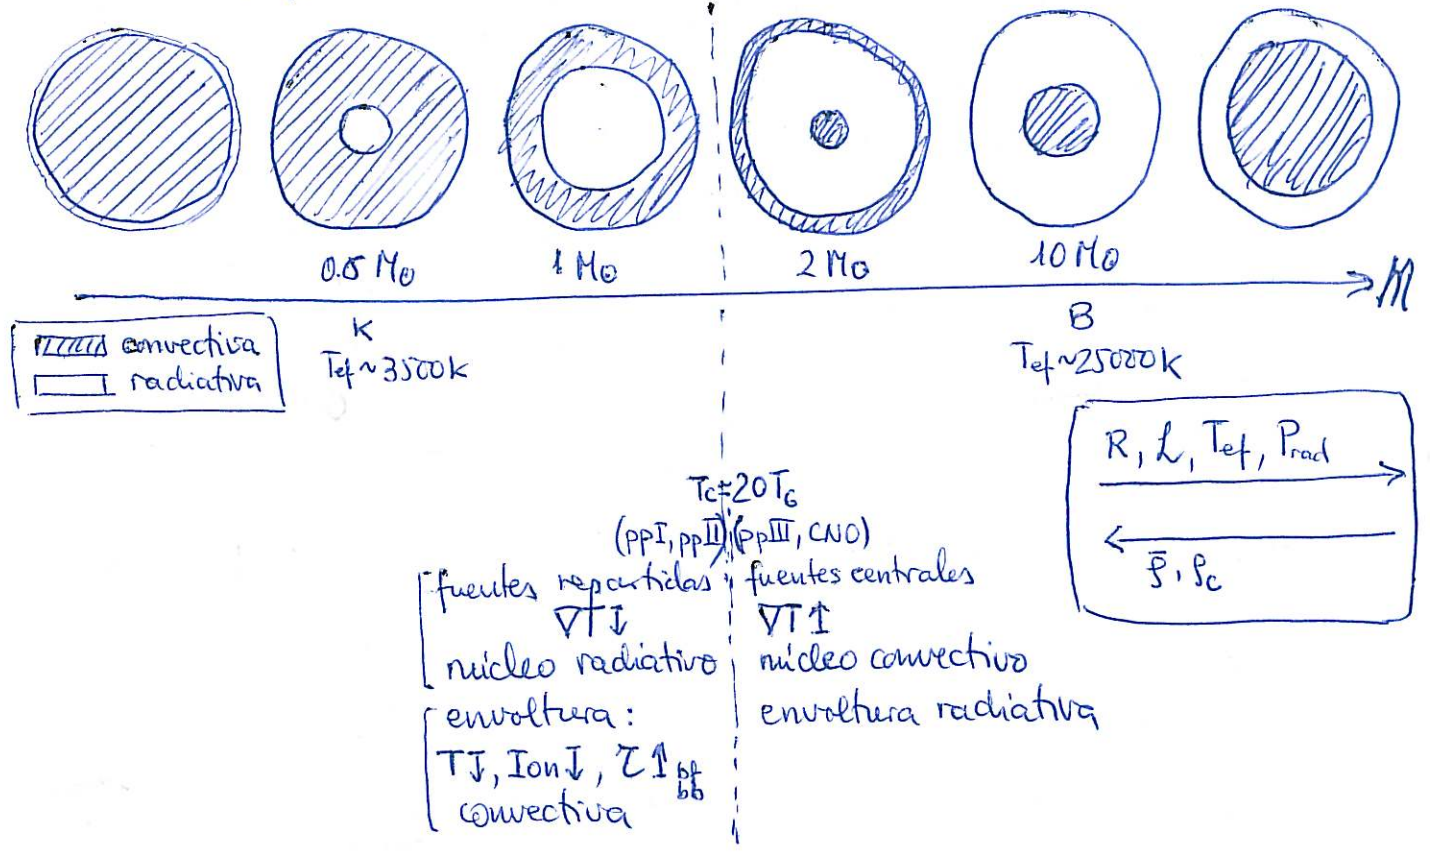 0.5 M⊙
1 M⊙
2 M⊙
10 M⊙
M
convectiva
radiativa
K
Tef~3500K
B
Tef~25000K
R, L, Tef, Prad
ρ̄, ρc
Tc=20T6
(ppI, ppII) (ppIII, CNO)
fuentes repartidas
∇T↓
núcleo radiativo
envoltura:
T↓, Ion↓, τ↑ bf
bb
convectiva
fuentes centrales
∇T↑
núcleo convectivo
envoltura radiativa